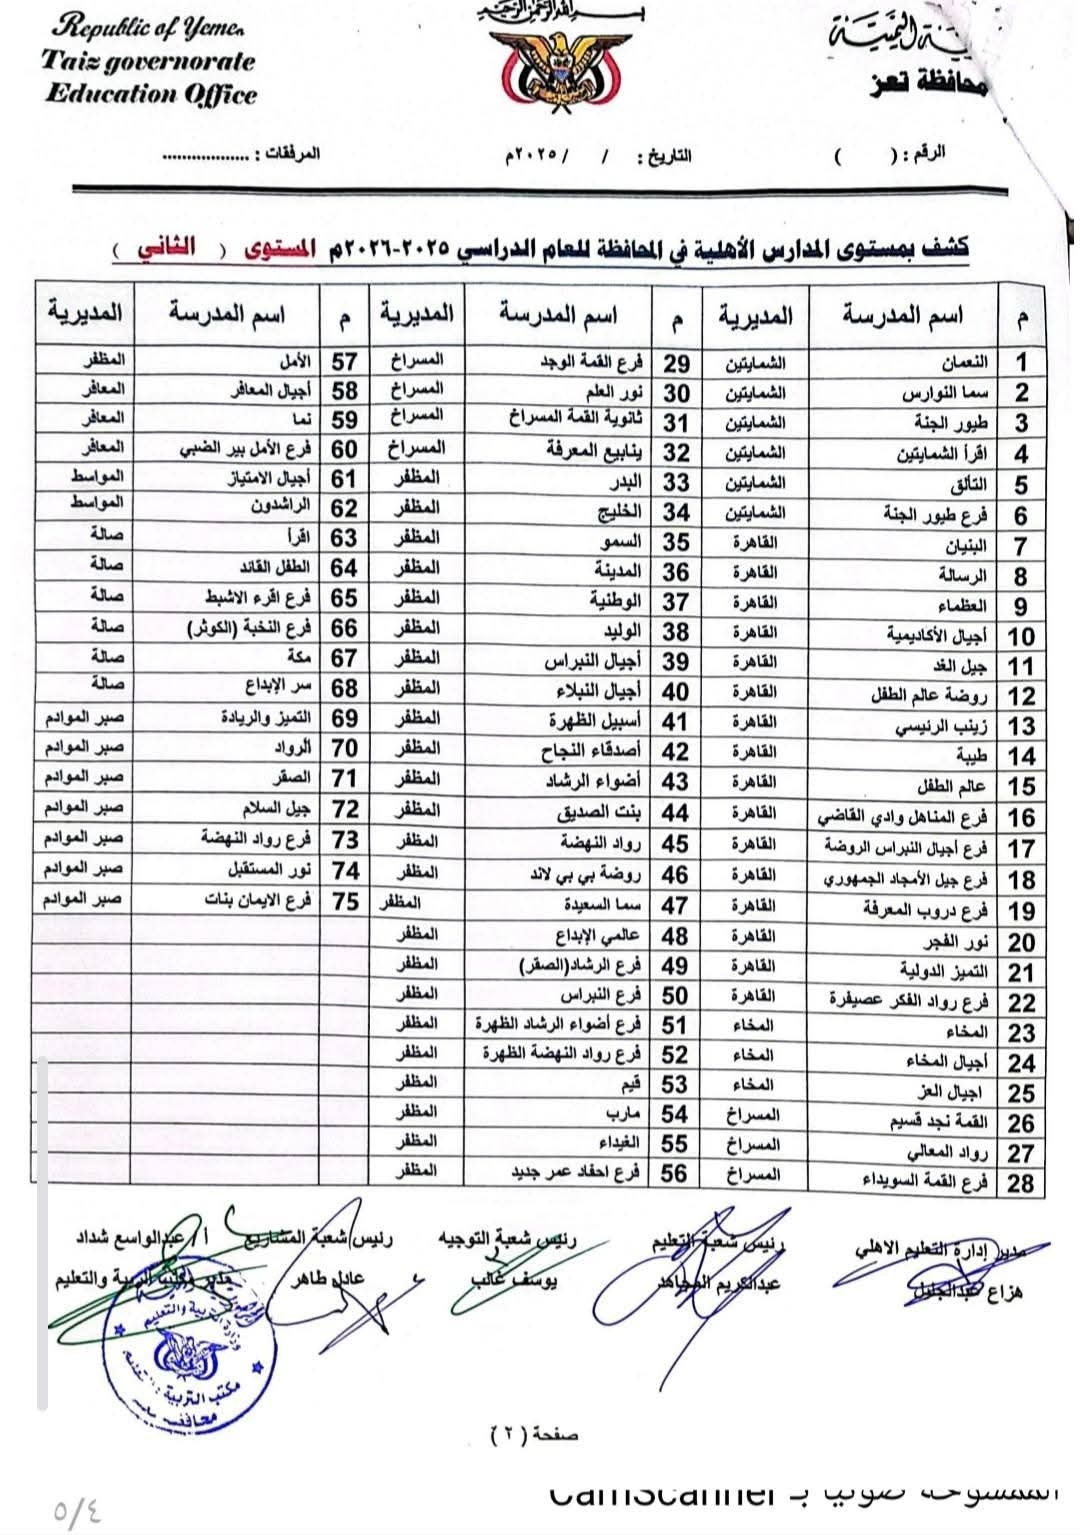 Republic of Yemen
Taiz governorate
Education Office
بسم الله الرحمن الرحيم
محافظة تعز
الرقم : ( )
التاريخ : / / ٢٠٢٥م
المرفقات : ..................
كشف بمستوى المدارس الأهلية في المحافظة للعام الدراسي ٢٠٢٥-٢٠٢٦م المستوى ( الثاني )
م اسم المدرسة المديرية م اسم المدرسة المديرية م اسم المدرسة المديرية
1 النعمان الشمايتين 29 فرع القمة الوجد المسراخ 57 الأمل المظفر
2 سما النوارس الشمايتين 30 نور العلم المسراخ 58 أجيال المعافر المعافر
3 طيور الجنة الشمايتين 31 ثانوية القمة المسراخ المسراخ 59 نما المعافر
4 اقرأ الشمايتين الشمايتين 32 ينابيع المعرفة المسراخ 60 فرع الأمل بير الضبي المعافر
5 التألق الشمايتين 33 البدر المظفر 61 أجيال الامتياز المواسط
6 فرع طيور الجنة الشمايتين 34 الخليج المظفر 62 الراشدون المواسط
7 البنيان القاهرة 35 السمو المظفر 63 اقرأ صالة
8 الرسالة القاهرة 36 المدينة المظفر 64 الطفل القائد صالة
9 العظماء القاهرة 37 الوطنية المظفر 65 فرع اقرء الاشبط صالة
10 أجيال الأكاديمية القاهرة 38 الوليد المظفر 66 فرع النخبة (الكوثر) صالة
11 جيل الغد القاهرة 39 أجيال النبراس المظفر 67 مكة صالة
12 روضة عالم الطفل القاهرة 40 أجيال النبلاء المظفر 68 سر الإبداع صالة
13 زينب الرئيسي القاهرة 41 أسبيل الظهرة المظفر 69 التميز والريادة صبر الموادم
14 طيبة القاهرة 42 أصدقاء النجاح المظفر 70 الرواد صبر الموادم
15 عالم الطفل القاهرة 43 أضواء الرشاد المظفر 71 الصقر صبر الموادم
16 فرع المناهل وادي القاضي القاهرة 44 بنت الصديق المظفر 72 جيل السلام صبر الموادم
17 فرع أجيال النبراس الروضة القاهرة 45 رواد النهضة المظفر 73 فرع رواد النهضة صبر الموادم
18 فرع جيل الأمجاد الجمهوري القاهرة 46 روضة بي بي لاند المظفر 74 نور المستقبل صبر الموادم
19 فرع دروب المعرفة القاهرة 47 سما السعيدة المظفر 75 فرع الايمان بنات صبر الموادم
20 نور الفجر القاهرة 48 عالمي الإبداع المظفر
21 التميز الدولية القاهرة 49 فرع الرشاد(الصقر) المظفر
22 فرع رواد الفكر عصيفرة القاهرة 50 فرع النبراس المظفر
23 المخاء المخاء 51 فرع أضواء الرشاد الظهرة المظفر
24 أجيال المخاء المخاء 52 فرع رواد النهضة الظهرة المظفر
25 اجيال العز المخاء 53 قيم المظفر
26 القمة نجد قسيم المسراخ 54 مارب المظفر
27 رواد المعالي المسراخ 55 الغيداء المظفر
28 فرع القمة السويداء المسراخ 56 فرع احفاد عمر جديد المظفر
مدير إدارة التعليم الاهلي رئيس شعبة التعليم رئيس شعبة التوجيه رئيس شعبة المشاريع أ/ عبدالواسع شداد
هزاع عبدالجليل عبدالكريم المجاهد يوسف غالب عادل طاهر مدير مكتب التربية والتعليم
وزارة التربية والتعليم
مكتب التربية
صفحة ( ٢ )
الممسوحة ضوئيا بـ CamScanner
٥/٤